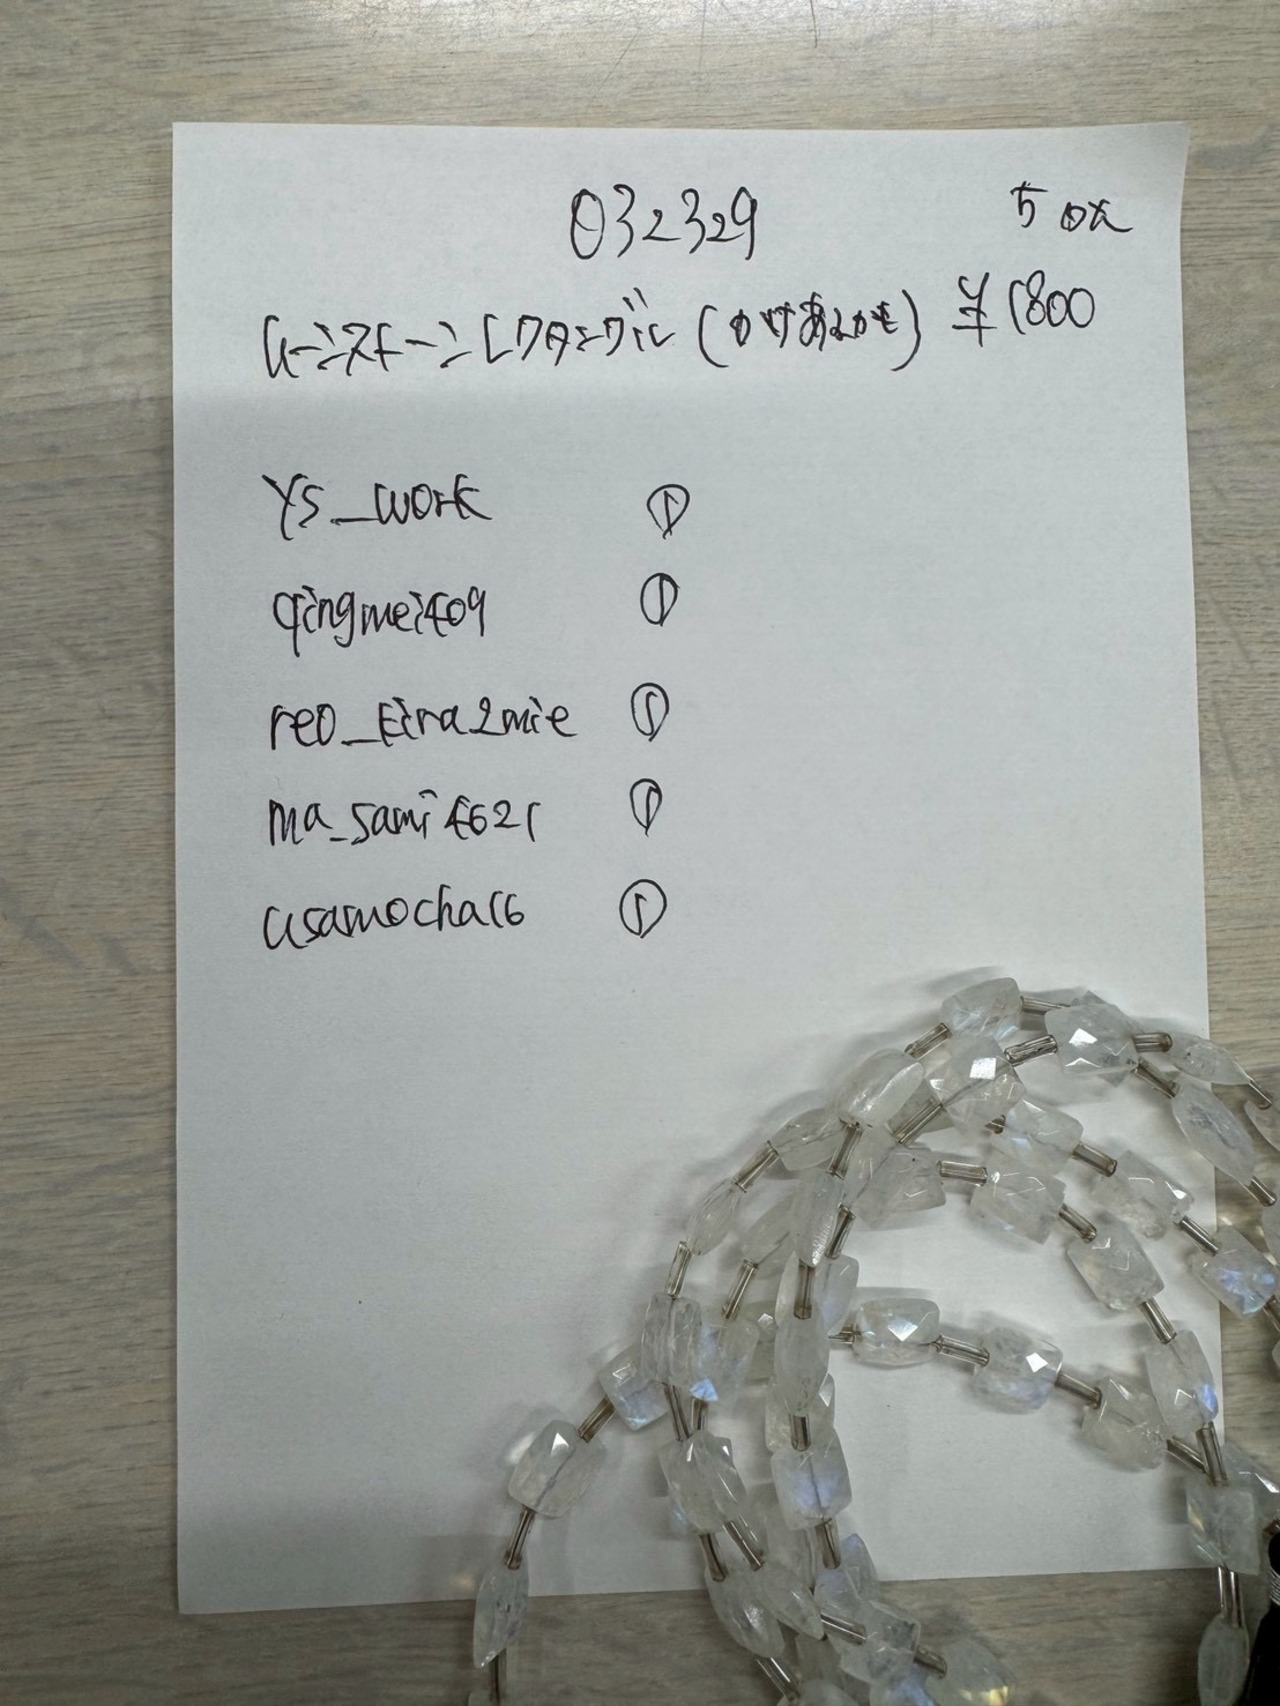 032329 5 点
ムーンストーン レクタングル (かけあるかも) ¥1800
YS_work ①
qingmei409 ①
reo_kira2mie ①
ma_sami4621 ①
usamocha16 ①